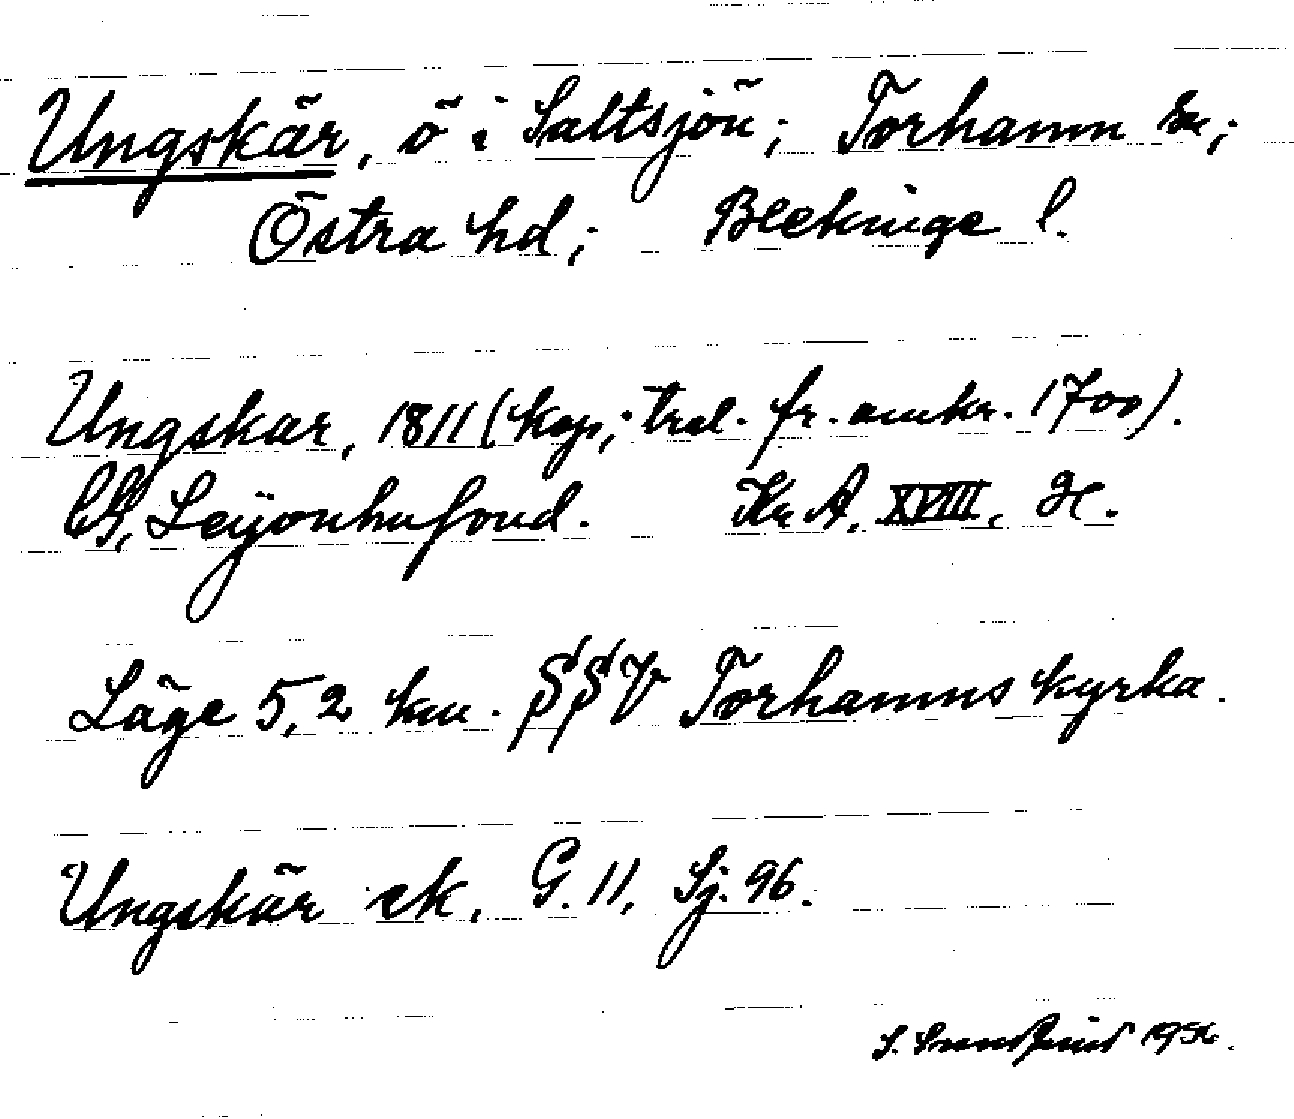 Ungskär, ö i Saltsjön; Torhamn sn;
Östra hd; Blekinge l.
Ungskar, 1811 (kop; trol. fr. omkr. 1700).
CG, Leijonhufvud. Kr. A. XVIII, H.
Läge 5,2 km. SSV Torhamns kyrka.
Ungskär ek. G. 11. Sj. 96.
S. 1956.